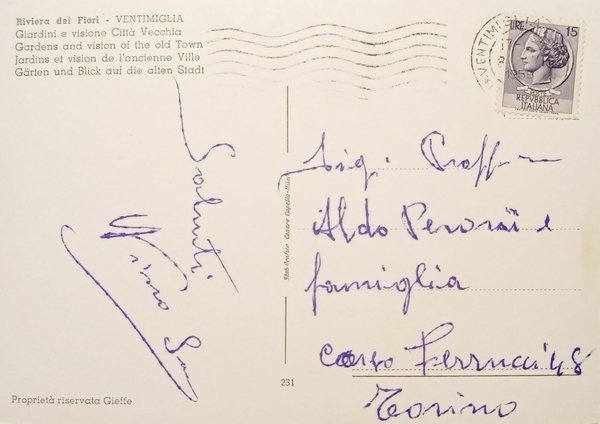 Riviera dei Fiori - VENTIMIGLIA
Giardini e visione Città Vecchia
Gardens and vision of the old Town
Jardins et vision de l'ancienne Ville
Gärten und Blick auf die alten Stadt
VENTIMIGLIA
1959
LIRE 15
POSTE
REPVBBLICA
ITALIANA
Saluti
Nino
Sig. Proff
Aldo e
famiglia
corso Ferrucci 48
Torino
231
Proprietà riservata Gieffe